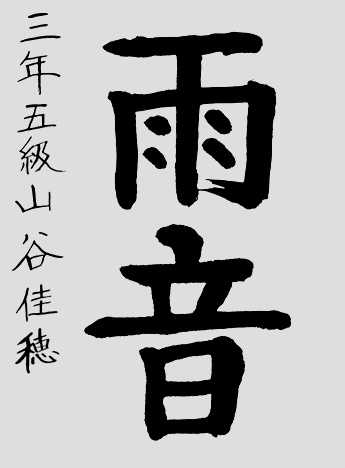 雨音
三年五級山谷佳穂